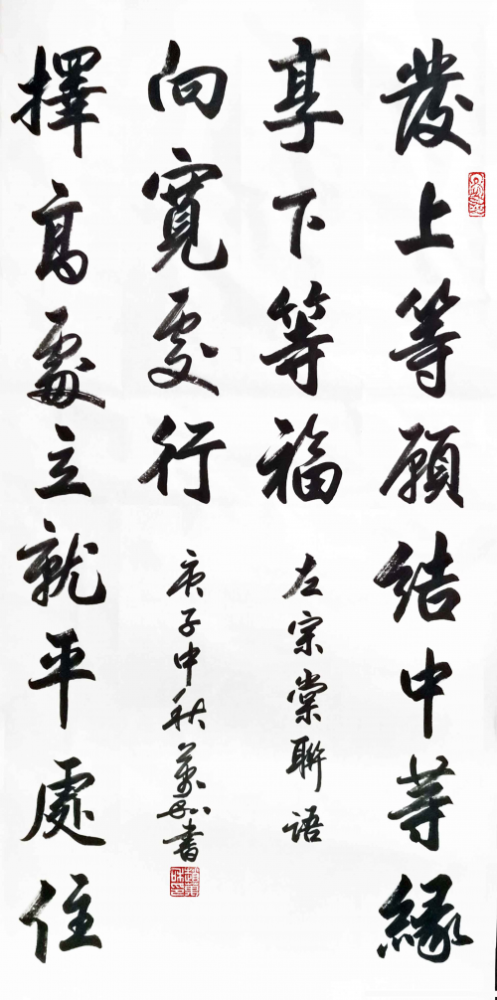 發上等願結中等緣
享下等福
左宗棠聯語
擇高處立就平處住
向寬處行
庚子中秋萬和書